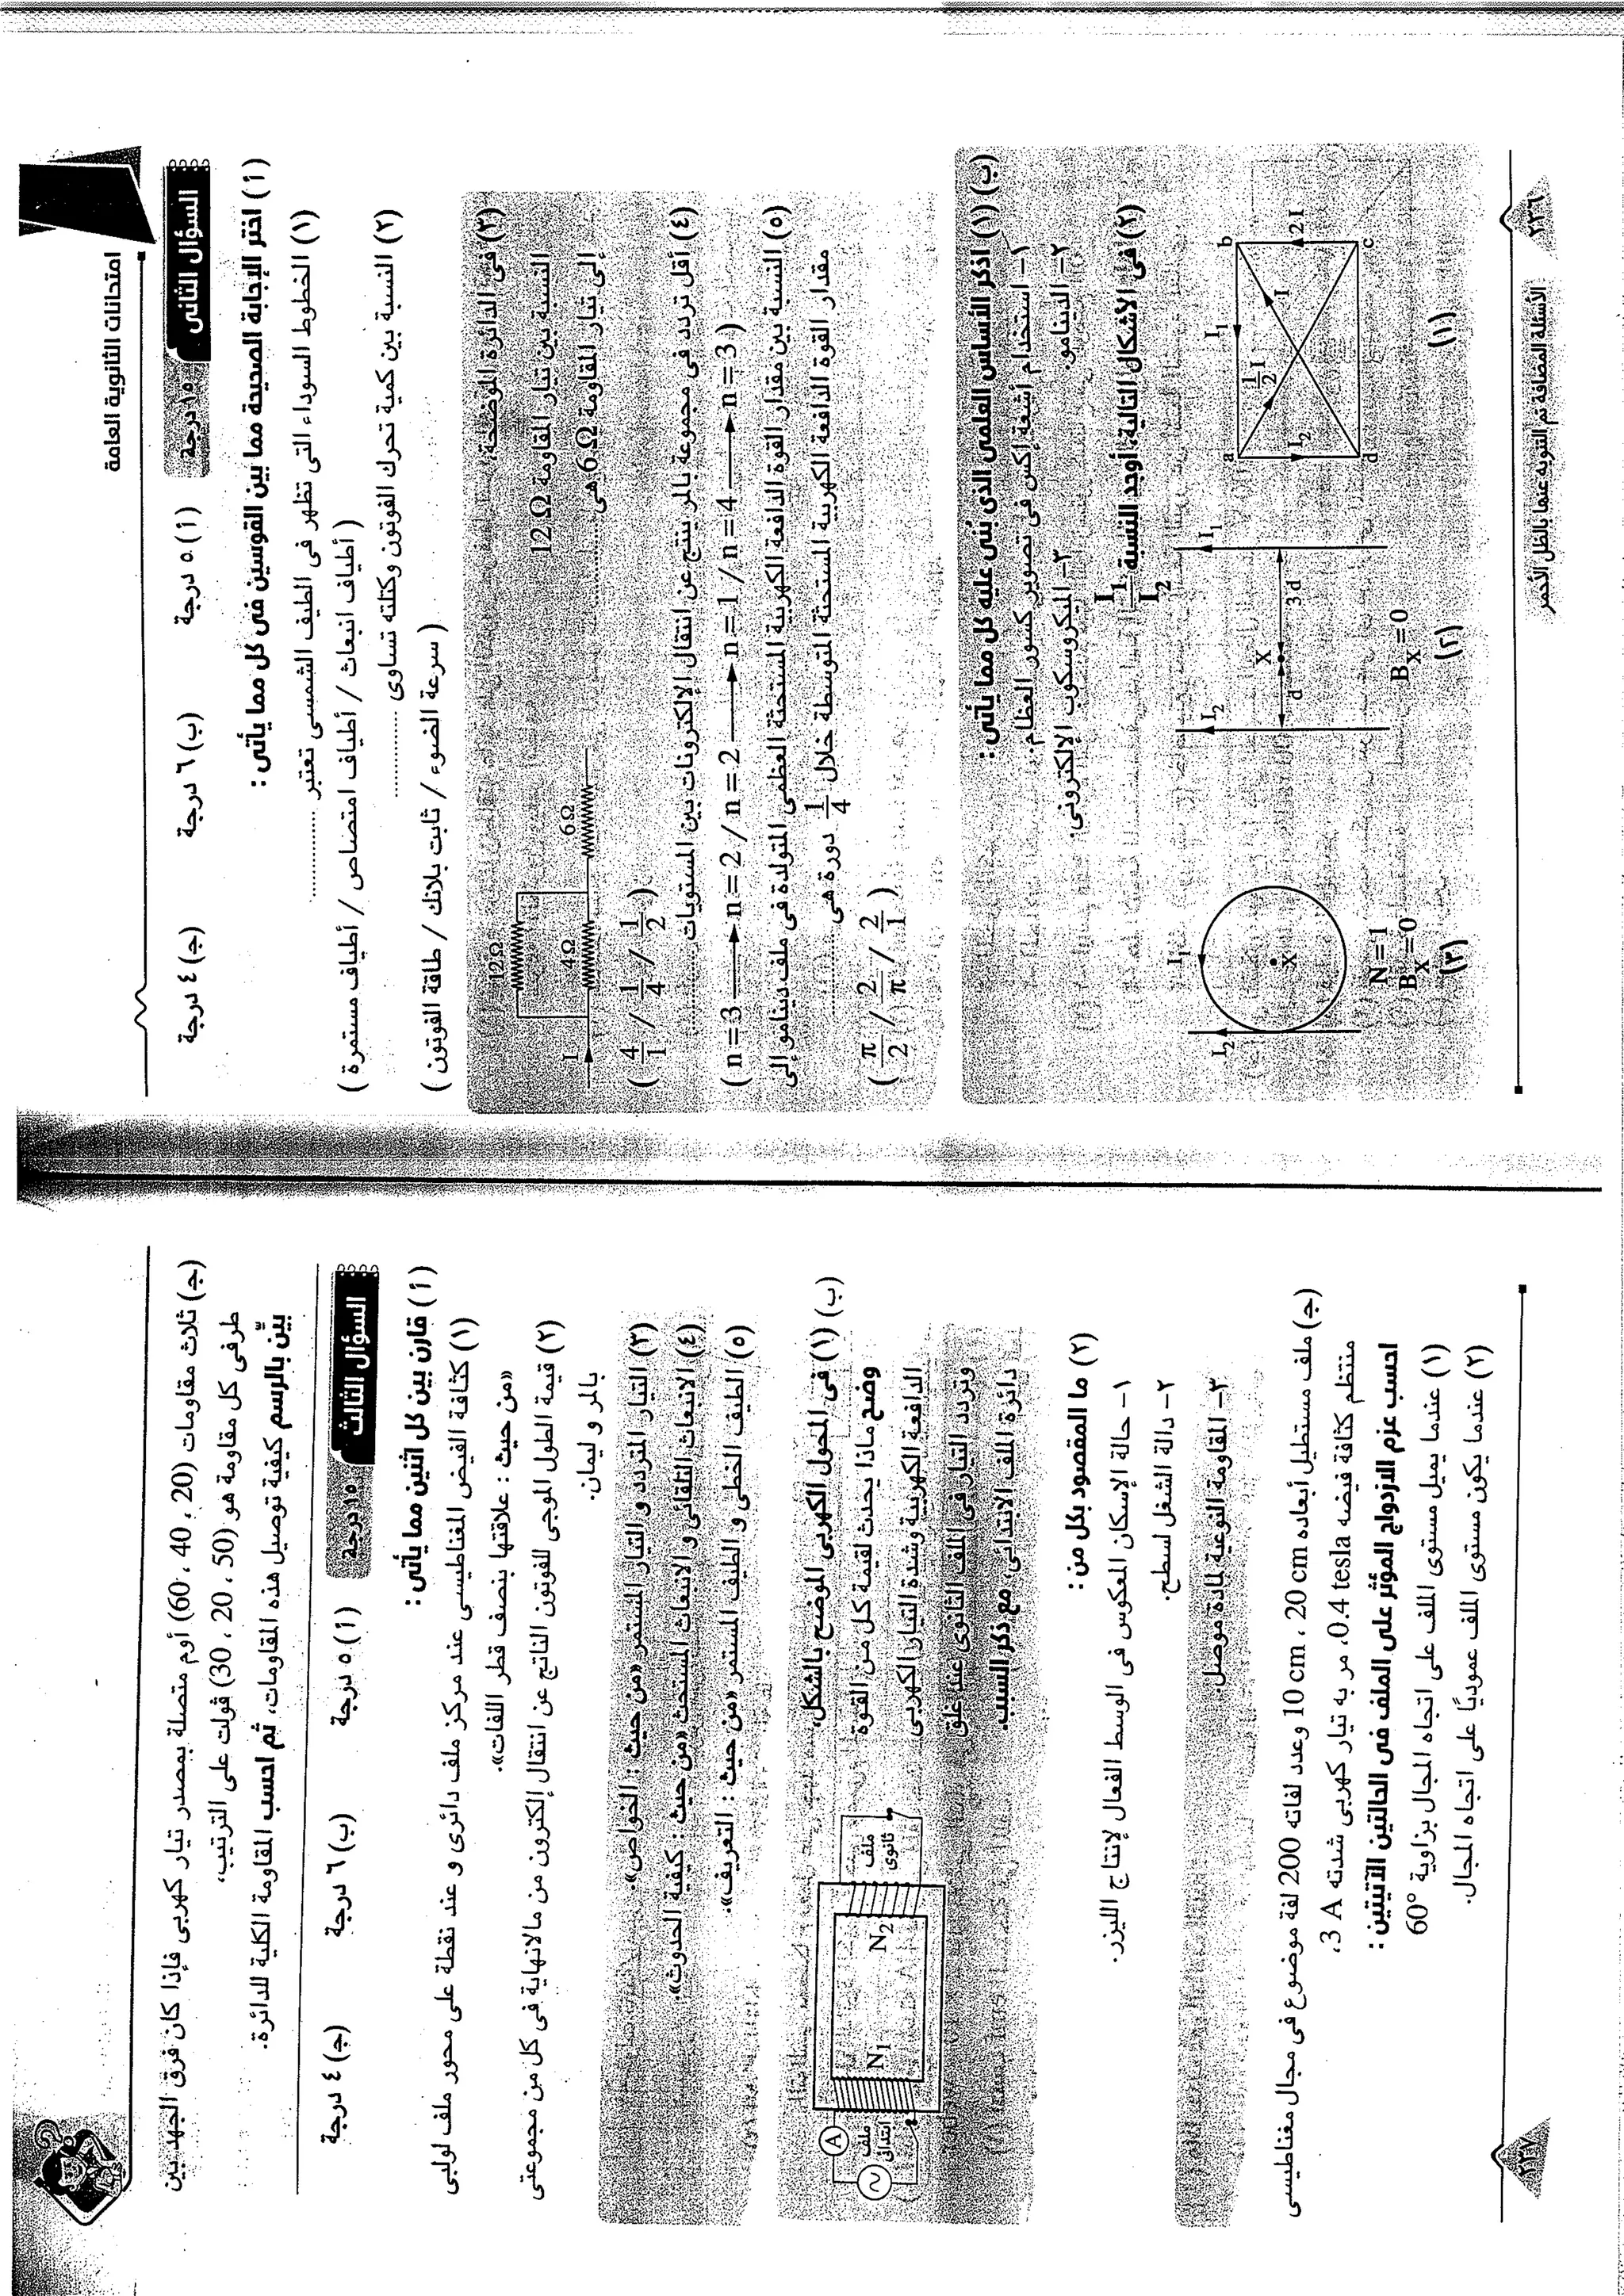 امتحانات الثانوية العامة
السؤال الثانى ١٥ درجة (أ) ٥ درجة (ب) ٦ درجة (ج) ٤ درجة
(أ) اختر الإجابة الصحيحة مما بين القوسين فى كل مما يأتى :
(١) الخطوط السوداء التى تظهر فى الطيف الشمسى تعتبر ..............
( أطياف انبعاث / أطياف امتصاص / أطياف مستمرة )
(٢) النسبة بين كمية تحرك الفوتون وكتلته تساوى ..............
( سرعة الضوء / ثابت بلانك / طاقة الفوتون )
(٣) فى الدائرة الموضحة،
النسبة بين تيار المقاومة 12 Ω
إلى تيار المقاومة 6 Ω هى ..............
12 Ω
4 Ω
6 Ω
I
( 4/1 / 1/4 / 1/2 )
(٤) أقل تردد فى مجموعة بالمر ينتج عن انتقال الإلكترونات بين المستويات ..............
( n = 3 ⟶ n = 2 / n = 2 ⟶ n = 1 / n = 4 ⟶ n = 3 )
(٥) النسبة بين مقدار القوة الدافعة الكهربية المستحثة العظمى المتولدة فى ملف دينامو إلى
مقدار القوة الدافعة الكهربية المستحثة المتوسطة خلال 1/4 دورة هى ..............
( π/2 / 2/π / 2/1 )
(ب) (١) اذكر الأساس العلمى الذى بُنى عليه كل مما يأتى :
١- استخدام أشعة إكس فى تصوير كسور العظام.
٢- الدينامو. ٣- الميكروسكوب الإلكترونى.
(٢) فى الأشكال التالية، أوجد النسبة I₁/I₂
a I₁ b
½ I I
I₂ 2 I
d c
(١)
I₂ I₁
d X 3 d
Bₓ = 0
(٢)
I₂ I₁
X
N = 1
Bₓ = 0
(٣)
٢٣٦ الأسئلة المضافة تم التنويه عنها بالظل الأحمر
(ج) ثلاث مقاومات (20 ، 40 ، 60) أوم متصلة بمصدر تيار كهربى فإذا كان فرق الجهد بين
طرفى كل مقاومة هو (50 ، 20 ، 30) ڤولت على الترتيب،
بيِّن بالرسم كيفية توصيل هذه المقاومات، ثم احسب المقاومة الكلية للدائرة.
السؤال الثالث ١٥ درجة (أ) ٥ درجة (ب) ٦ درجة (ج) ٤ درجة
(أ) قارن بين كل اثنين مما يأتى :
(١) كثافة الفيض المغناطيسى عند مركز ملف دائرى و عند نقطة على محور ملف لولبى
«من حيث : علاقتها بنصف قطر اللفات».
(٢) قيمة الطول الموجى للفوتون الناتج عن انتقال إلكترون من مالانهاية فى كل من مجموعتى
بالمر و ليمان.
(٣) التيار المتردد و التيار المستمر «من حيث : الخواص».
(٤) الانبعاث التلقائى و الانبعاث المستحث «من حيث : كيفية الحدوث».
(٥) الطيف الخطى و الطيف المستمر «من حيث : التعريف».
(ب) (١) فى المحول الكهربى الموضح بالشكل،
وضح ماذا يحدث لقيمة كل من القوة
الدافعة الكهربية وشدة التيار الكهربى
وتردد التيار فى الملف الثانوى عند غلق
دائرة الملف الابتدائى، مع ذكر السبب.
A
ملف ابتدائى
N₁
N₂
ملف ثانوى
(٢) ما المقصود بكل من :
١- حالة الإسكان المعكوس فى الوسط الفعال لإنتاج الليزر.
٢- دالة الشغل لسطح.
٣- المقاومة النوعية لمادة موصل.
(ج) ملف مستطيل أبعاده 20 cm ، 10 cm وعدد لفاته 200 لفة موضوع فى مجال مغناطيسى
منتظم كثافة فيضه 0.4 tesla، مر به تيار كهربى شدته 3 A،
احسب عزم الازدواج المؤثر على الملف فى الحالتين الآتيتين :
(١) عندما يميل مستوى الملف على اتجاه المجال بزاوية 60°
(٢) عندما يكون مستوى الملف عموديًا على اتجاه المجال.
٢٣٧